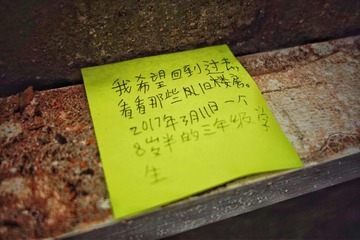 我希望回到过去，
看看那些风旧楼房。
2017年3月11日一个
8岁半的三年级学
生